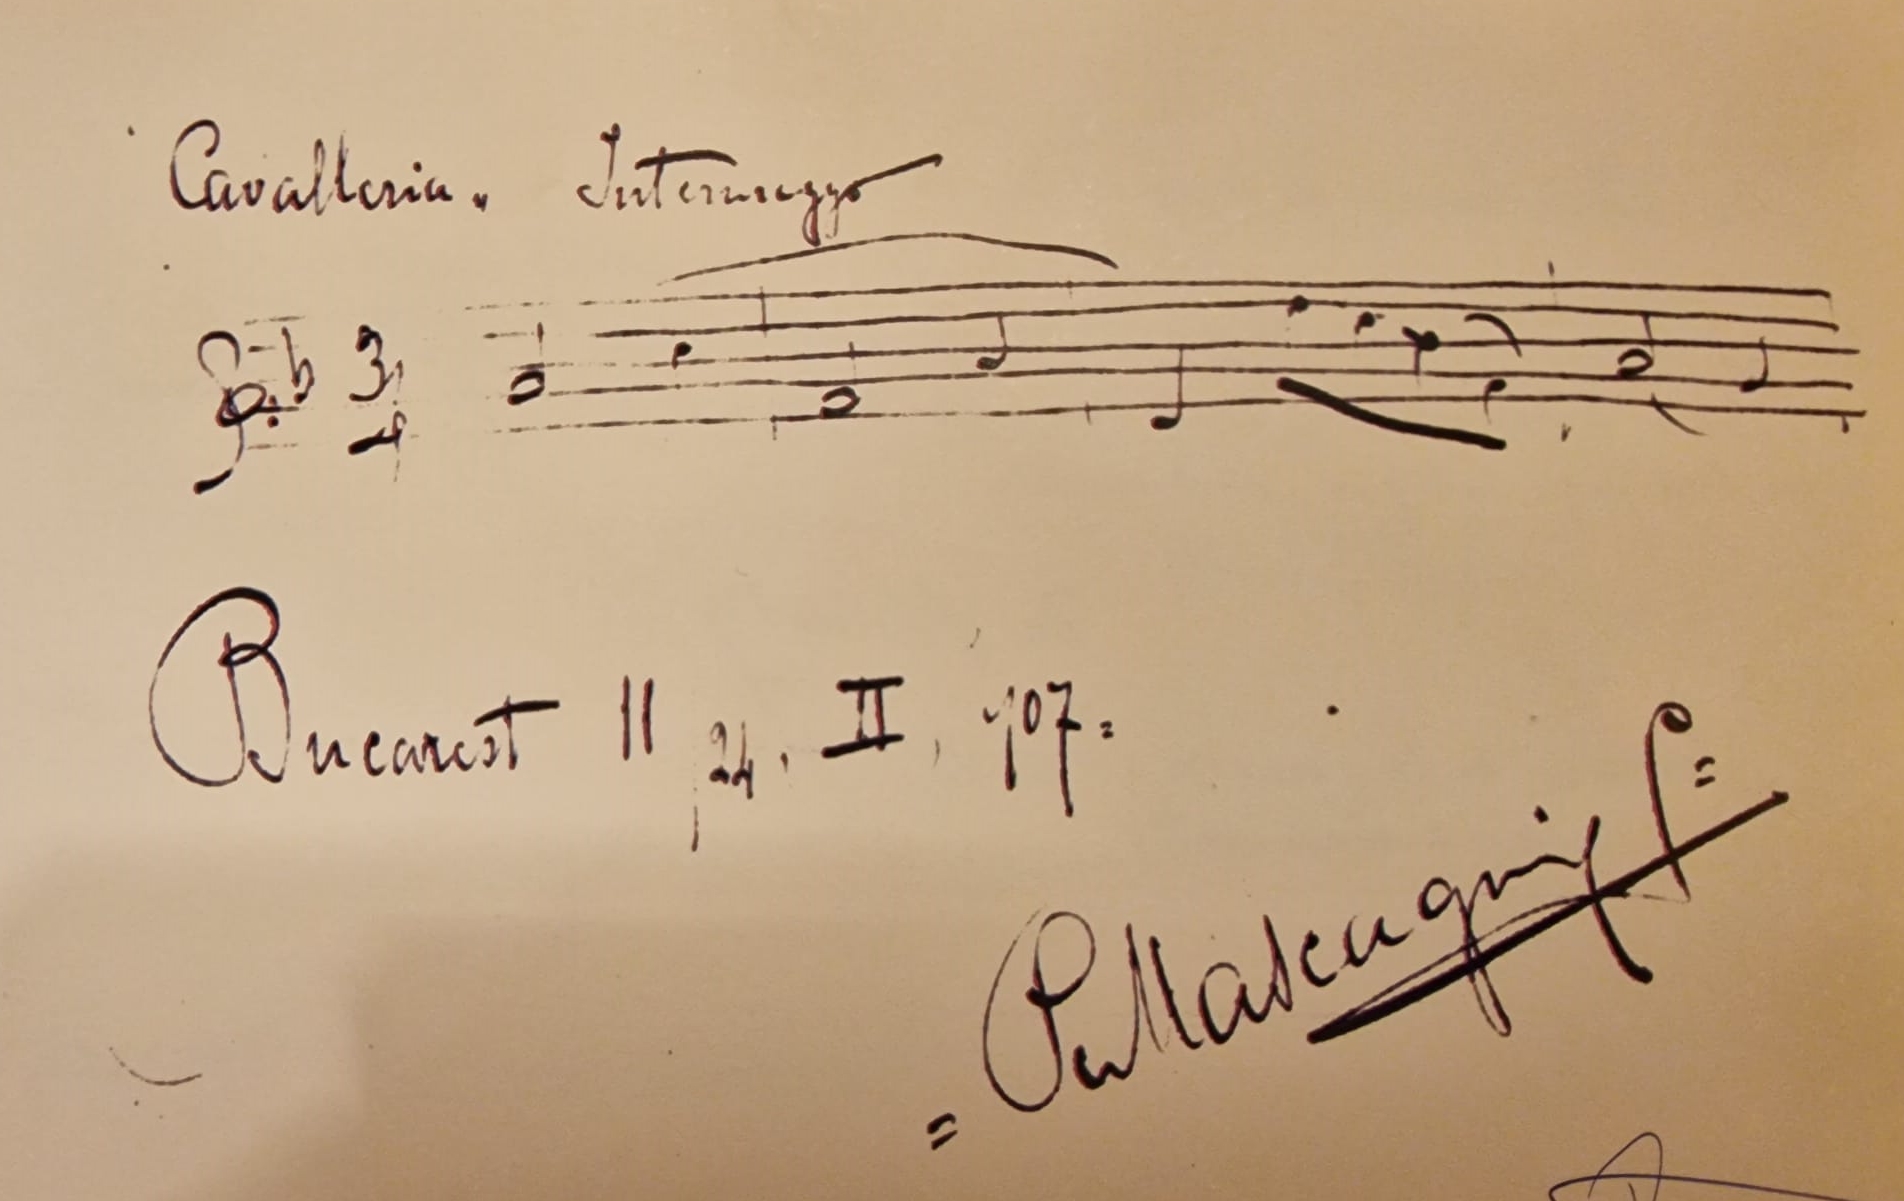 Cavalleria. Intermezzo
3
4
Bucarest 11/24. II, 907=
= P. Mascagni =